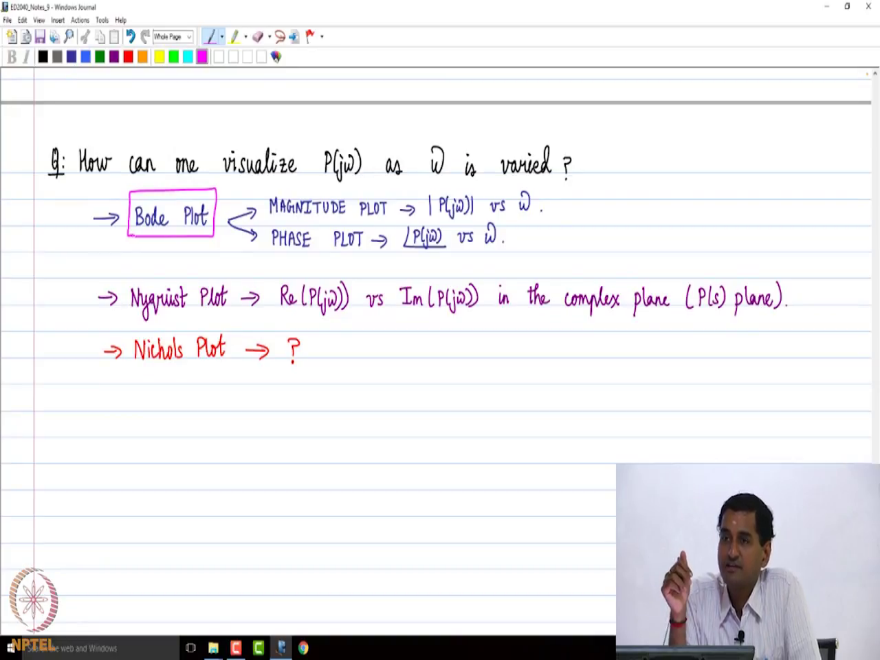 ED2040_Notes_9 - Windows Journal
File Edit View Insert Actions Tools Help
Whole Page
B I
Q: How can one visualize P(jω) as ω is varied?
→ Bode Plot
→ MAGNITUDE PLOT → |P(jω)| vs ω.
→ PHASE PLOT → ∠P(jω) vs ω.
→ Nyquist Plot → Re(P(jω)) vs Im(P(jω)) in the complex plane (P(s) plane).
→ Nichols Plot → ?
NPTEL
the web and Windows